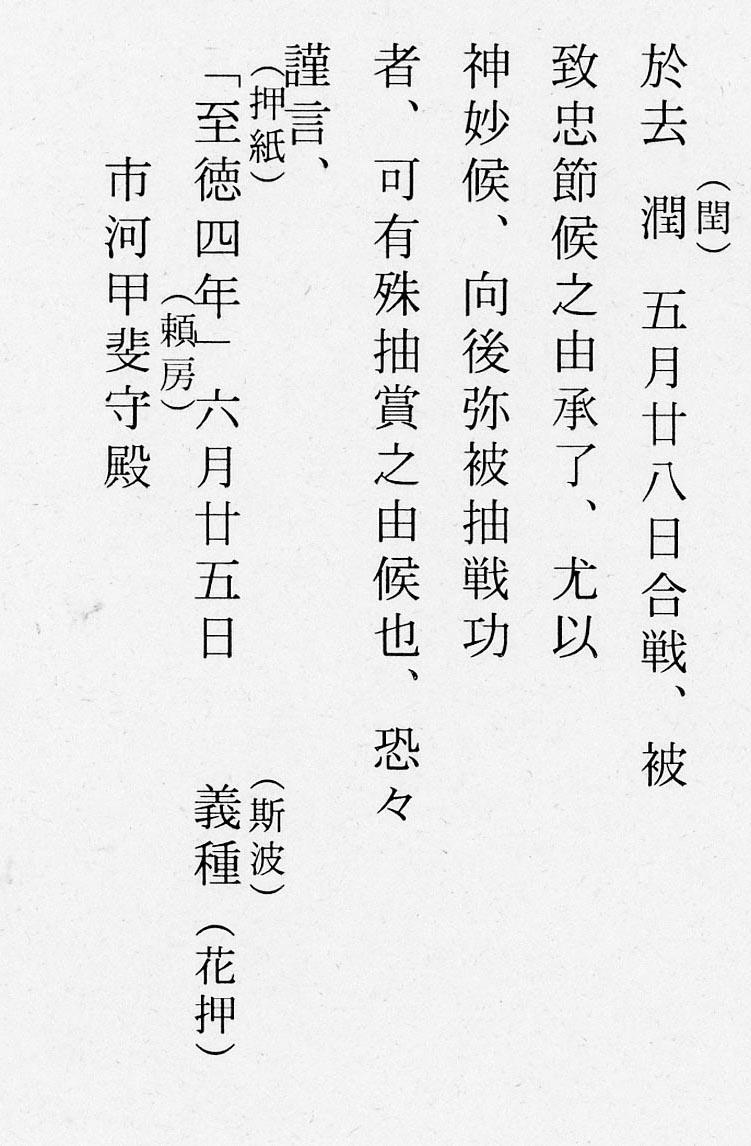 於去　潤（閏）　五月廿八日合戦、被
致忠節候之由承了、尤以
神妙候、向後弥被抽戦功
者、可有殊抽賞之由候也、恐々
謹言、
（押紙）
「至徳四年」六月廿五日　　義種（斯波）（花押）
市河甲斐守殿（頼房）